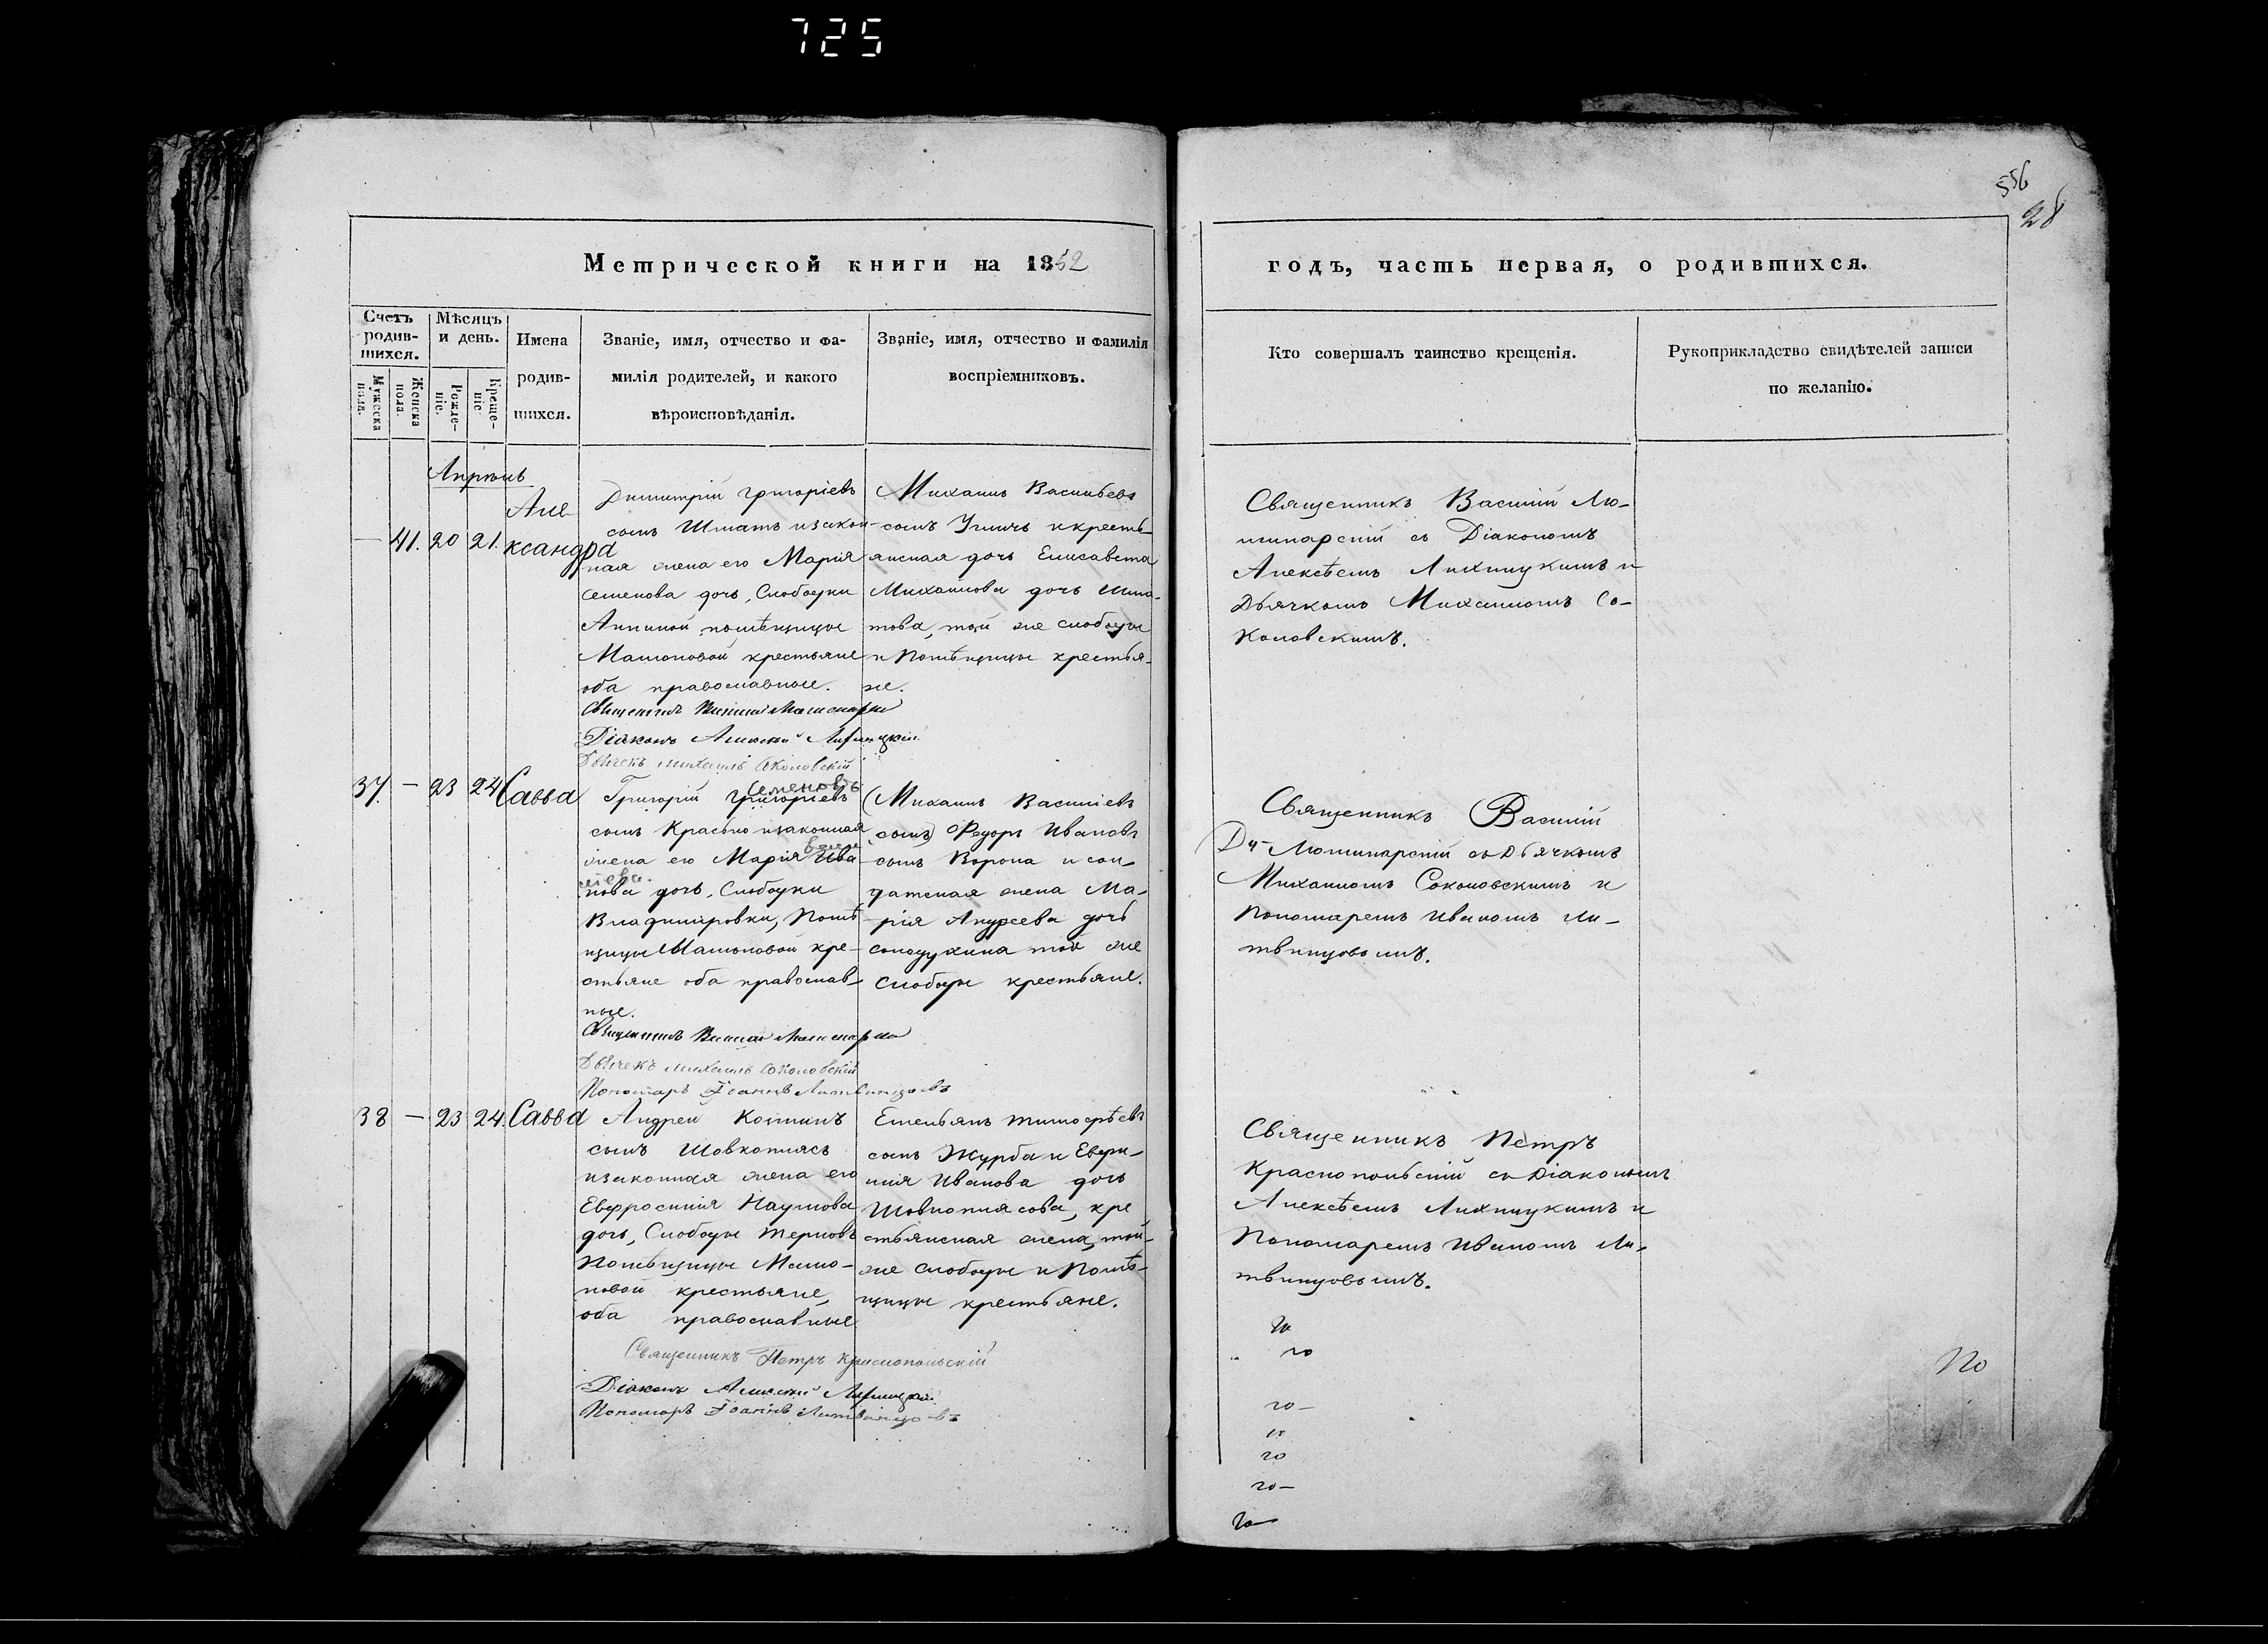 725
556
28
Метрической книги на 1852
годъ, часть первая, о родившихся.
Счетъ родив-шихся.
Мужеска пола.
Женска пола.
Мѣсяцъ и день.
Рожде-ніе.
Креще-ніе.
Имена
родив-
шихся.
Званіе, имя, отчество и фа-
милія родителей, и какого
вѣроисповѣданія.
Званіе, имя, отчество и фамилія
воспріемниковъ.
Кто совершалъ таинство крещенія.
Рукоприкладство свидѣтелей записи
по желанію.
Апрѣль
— 41. 20 21.
Але
ксандра
Димитрій Григоріевъ
сынъ Шматъ изакон-
ная жена его Марія
Семенова дочь, Слободки
Анниной помѣщицы
Мамоновой крестьяне
оба православные.
Священникъ Василій
Діаконъ Алексѣй Лихницкій
Дьячекъ Михаилъ Соколовскій
Михаилъ Васильевъ
сынъ и кресть-
янская дочь Елисавета
Михайлова дочь Шма-
това, той же слободы
и Помѣщицы крестья-
не.
Священникъ Василій Лю-
съ Діакономъ
Алексѣемъ Лихницкимъ и
Дьячкомъ Михаиломъ Со-
коловскимъ.
37. — 23 24 Савва
Семеновъ
Григорій Григоріевъ
сынъ изаконная
жена его Марія Ива
нова дочь, Слободки
Владимировки, Помѣ
щицы Мамоновой кре-
стьяне оба православ-
ные.
Священникъ Василій
Дьячекъ Михаилъ Соколовскій
Пономарь Іоаннъ Литвинцовъ
(Михаилъ Василіевъ
сынъ) Федоръ Ивановъ
сынъ Ворона и сол-
датская жена Ма-
рія Андреева дочь
Солодухина той же
Слободы крестьяне.
Священникъ Василій
съ Дьячкомъ
Михаиломъ Соколовскимъ и
Пономаремъ Иваномъ Ли-
твинцовымъ.
38 — 23 24. Савва
Андрей
сынъ Шовкоплясъ
изаконная жена его
Евфросинія Наумова
дочь, Слободы Терновъ
Помѣщицы Мамо-
новой крестьяне,
оба православные
Священникъ Петръ Краснопольскій
Діаконъ Алексѣй Лихницкій
Пономарь Іоаннъ Литвинцовъ
Емельянъ Тимофѣевъ
сынъ Журба и
Иванова дочь
Шовкоплясова, кре
стьянская жена, той-
же слободы и Помѣ-
щицы крестьяне.
Священникъ Петръ
Краснопольскій съ Діакономъ
Алексѣемъ Лихницкимъ и
Пономаремъ Иваномъ Ли-
твинцовымъ.
По